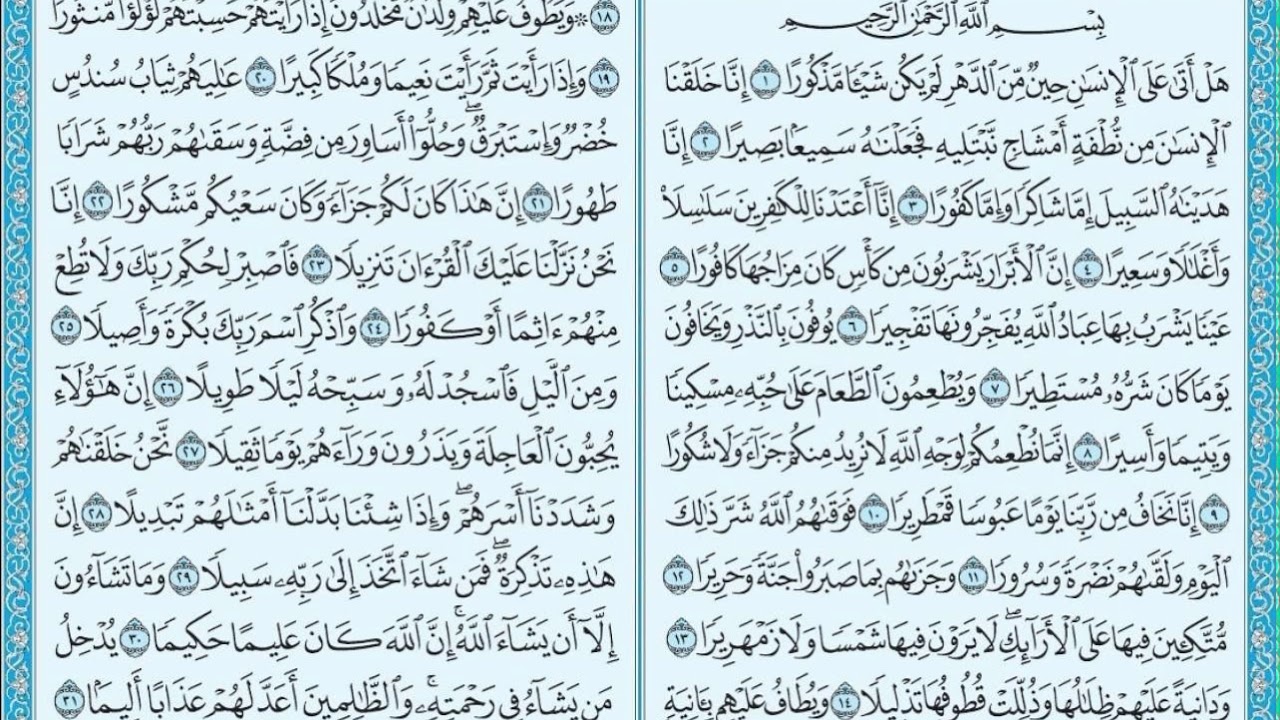 بِسْمِ ٱللَّهِ ٱلرَّحْمَٰنِ ٱلرَّحِيمِ
هَلْ أَتَىٰ عَلَى ٱلْإِنسَٰنِ حِينٌ مِّنَ ٱلدَّهْرِ لَمْ يَكُن شَيْـًٔا مَّذْكُورًا ١ إِنَّا خَلَقْنَا
ٱلْإِنسَٰنَ مِن نُّطْفَةٍ أَمْشَاجٍ نَّبْتَلِيهِ فَجَعَلْنَٰهُ سَمِيعًۢا بَصِيرًا ٢ إِنَّا
هَدَيْنَٰهُ ٱلسَّبِيلَ إِمَّا شَاكِرًا وَإِمَّا كَفُورًا ٣ إِنَّآ أَعْتَدْنَا لِلْكَٰفِرِينَ سَلَٰسِلَا۟
وَأَغْلَٰلًا وَسَعِيرًا ٤ إِنَّ ٱلْأَبْرَارَ يَشْرَبُونَ مِن كَأْسٍ كَانَ مِزَاجُهَا كَافُورًا ٥
عَيْنًا يَشْرَبُ بِهَا عِبَادُ ٱللَّهِ يُفَجِّرُونَهَا تَفْجِيرًا ٦ يُوفُونَ بِٱلنَّذْرِ وَيَخَافُونَ
يَوْمًا كَانَ شَرُّهُۥ مُسْتَطِيرًا ٧ وَيُطْعِمُونَ ٱلطَّعَامَ عَلَىٰ حُبِّهِۦ مِسْكِينًا
وَيَتِيمًا وَأَسِيرًا ٨ إِنَّمَا نُطْعِمُكُمْ لِوَجْهِ ٱللَّهِ لَا نُرِيدُ مِنكُمْ جَزَآءً وَلَا شُكُورًا
٩ إِنَّا نَخَافُ مِن رَّبِّنَا يَوْمًا عَبُوسًا قَمْطَرِيرًا ١٠ فَوَقَىٰهُمُ ٱللَّهُ شَرَّ ذَٰلِكَ
ٱلْيَوْمِ وَلَقَّىٰهُمْ نَضْرَةً وَسُرُورًا ١١ وَجَزَىٰهُم بِمَا صَبَرُوا۟ جَنَّةً وَحَرِيرًا ١٢
مُّتَّكِـِٔينَ فِيهَا عَلَى ٱلْأَرَآئِكِ ۖ لَا يَرَوْنَ فِيهَا شَمْسًا وَلَا زَمْهَرِيرًا ١٣
وَدَانِيَةً عَلَيْهِمْ ظِلَٰلُهَا وَذُلِّلَتْ قُطُوفُهَا تَذْلِيلًا ١٤ وَيُطَافُ عَلَيْهِم بِـَٔانِيَةٍ
١٨ ۞ وَيَطُوفُ عَلَيْهِمْ وِلْدَٰنٌ مُّخَلَّدُونَ إِذَا رَأَيْتَهُمْ حَسِبْتَهُمْ لُؤْلُؤًا مَّنثُورًا
١٩ وَإِذَا رَأَيْتَ ثَمَّ رَأَيْتَ نَعِيمًا وَمُلْكًا كَبِيرًا ٢٠ عَٰلِيَهُمْ ثِيَابُ سُندُسٍ
خُضْرٌ وَإِسْتَبْرَقٌ ۖ وَحُلُّوٓا۟ أَسَاوِرَ مِن فِضَّةٍ وَسَقَىٰهُمْ رَبُّهُمْ شَرَابًا
طَهُورًا ٢١ إِنَّ هَٰذَا كَانَ لَكُمْ جَزَآءً وَكَانَ سَعْيُكُم مَّشْكُورًا ٢٢ إِنَّا
نَحْنُ نَزَّلْنَا عَلَيْكَ ٱلْقُرْءَانَ تَنزِيلًا ٢٣ فَٱصْبِرْ لِحُكْمِ رَبِّكَ وَلَا تُطِعْ
مِنْهُمْ ءَاثِمًا أَوْ كَفُورًا ٢٤ وَٱذْكُرِ ٱسْمَ رَبِّكَ بُكْرَةً وَأَصِيلًا ٢٥
وَمِنَ ٱلَّيْلِ فَٱسْجُدْ لَهُۥ وَسَبِّحْهُ لَيْلًا طَوِيلًا ٢٦ إِنَّ هَٰٓؤُلَآءِ
يُحِبُّونَ ٱلْعَاجِلَةَ وَيَذَرُونَ وَرَآءَهُمْ يَوْمًا ثَقِيلًا ٢٧ نَّحْنُ خَلَقْنَٰهُمْ
وَشَدَدْنَآ أَسْرَهُمْ ۖ وَإِذَا شِئْنَا بَدَّلْنَآ أَمْثَٰلَهُمْ تَبْدِيلًا ٢٨ إِنَّ
هَٰذِهِۦ تَذْكِرَةٌ ۖ فَمَن شَآءَ ٱتَّخَذَ إِلَىٰ رَبِّهِۦ سَبِيلًا ٢٩ وَمَا تَشَآءُونَ
إِلَّآ أَن يَشَآءَ ٱللَّهُ ۚ إِنَّ ٱللَّهَ كَانَ عَلِيمًا حَكِيمًا ٣٠ يُدْخِلُ
مَن يَشَآءُ فِى رَحْمَتِهِۦ ۚ وَٱلظَّٰلِمِينَ أَعَدَّ لَهُمْ عَذَابًا أَلِيمًۢا ٣١